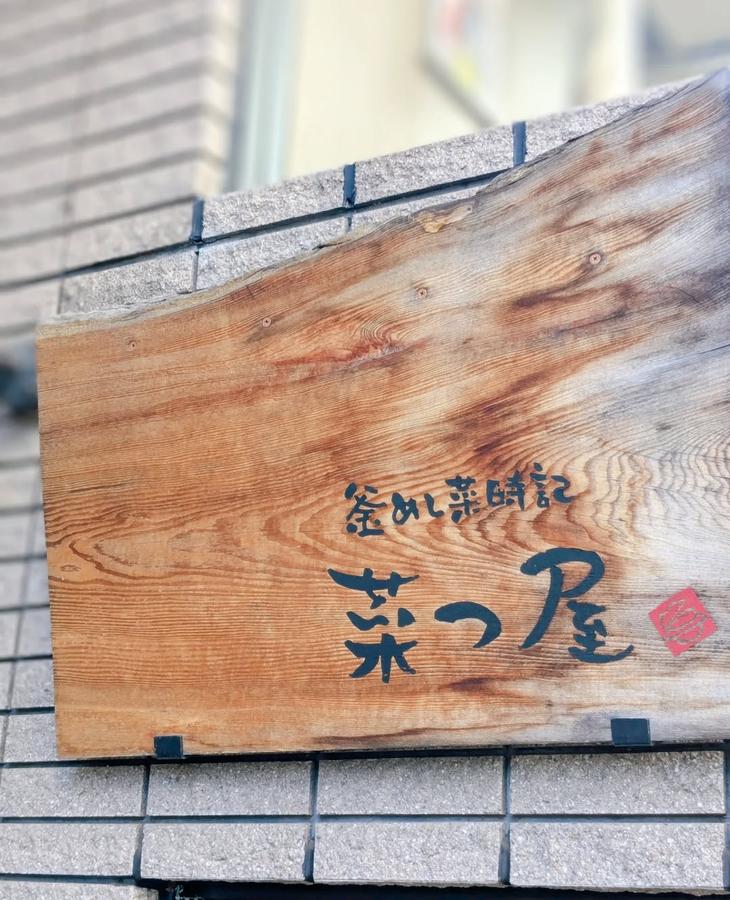 釜めし菜時記
菜つ屋